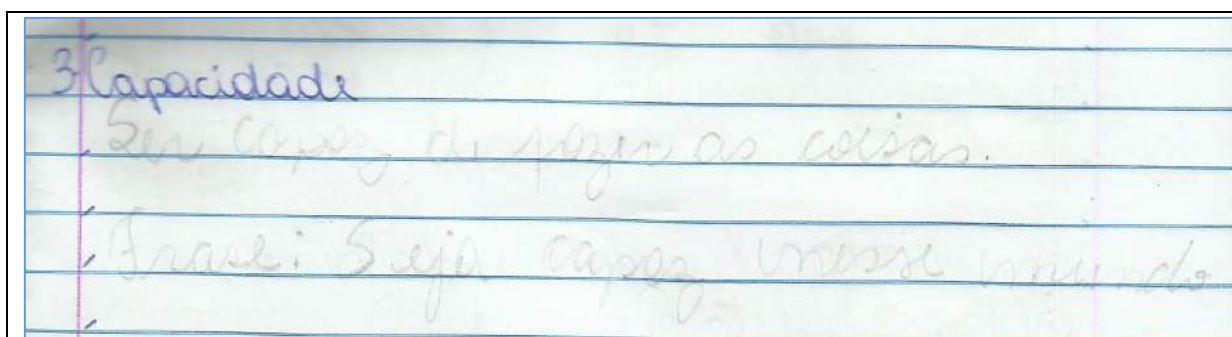 3 Capacidade
Ser capaz de fazer as coisas.
Frase: Seja capaz nesse mundo